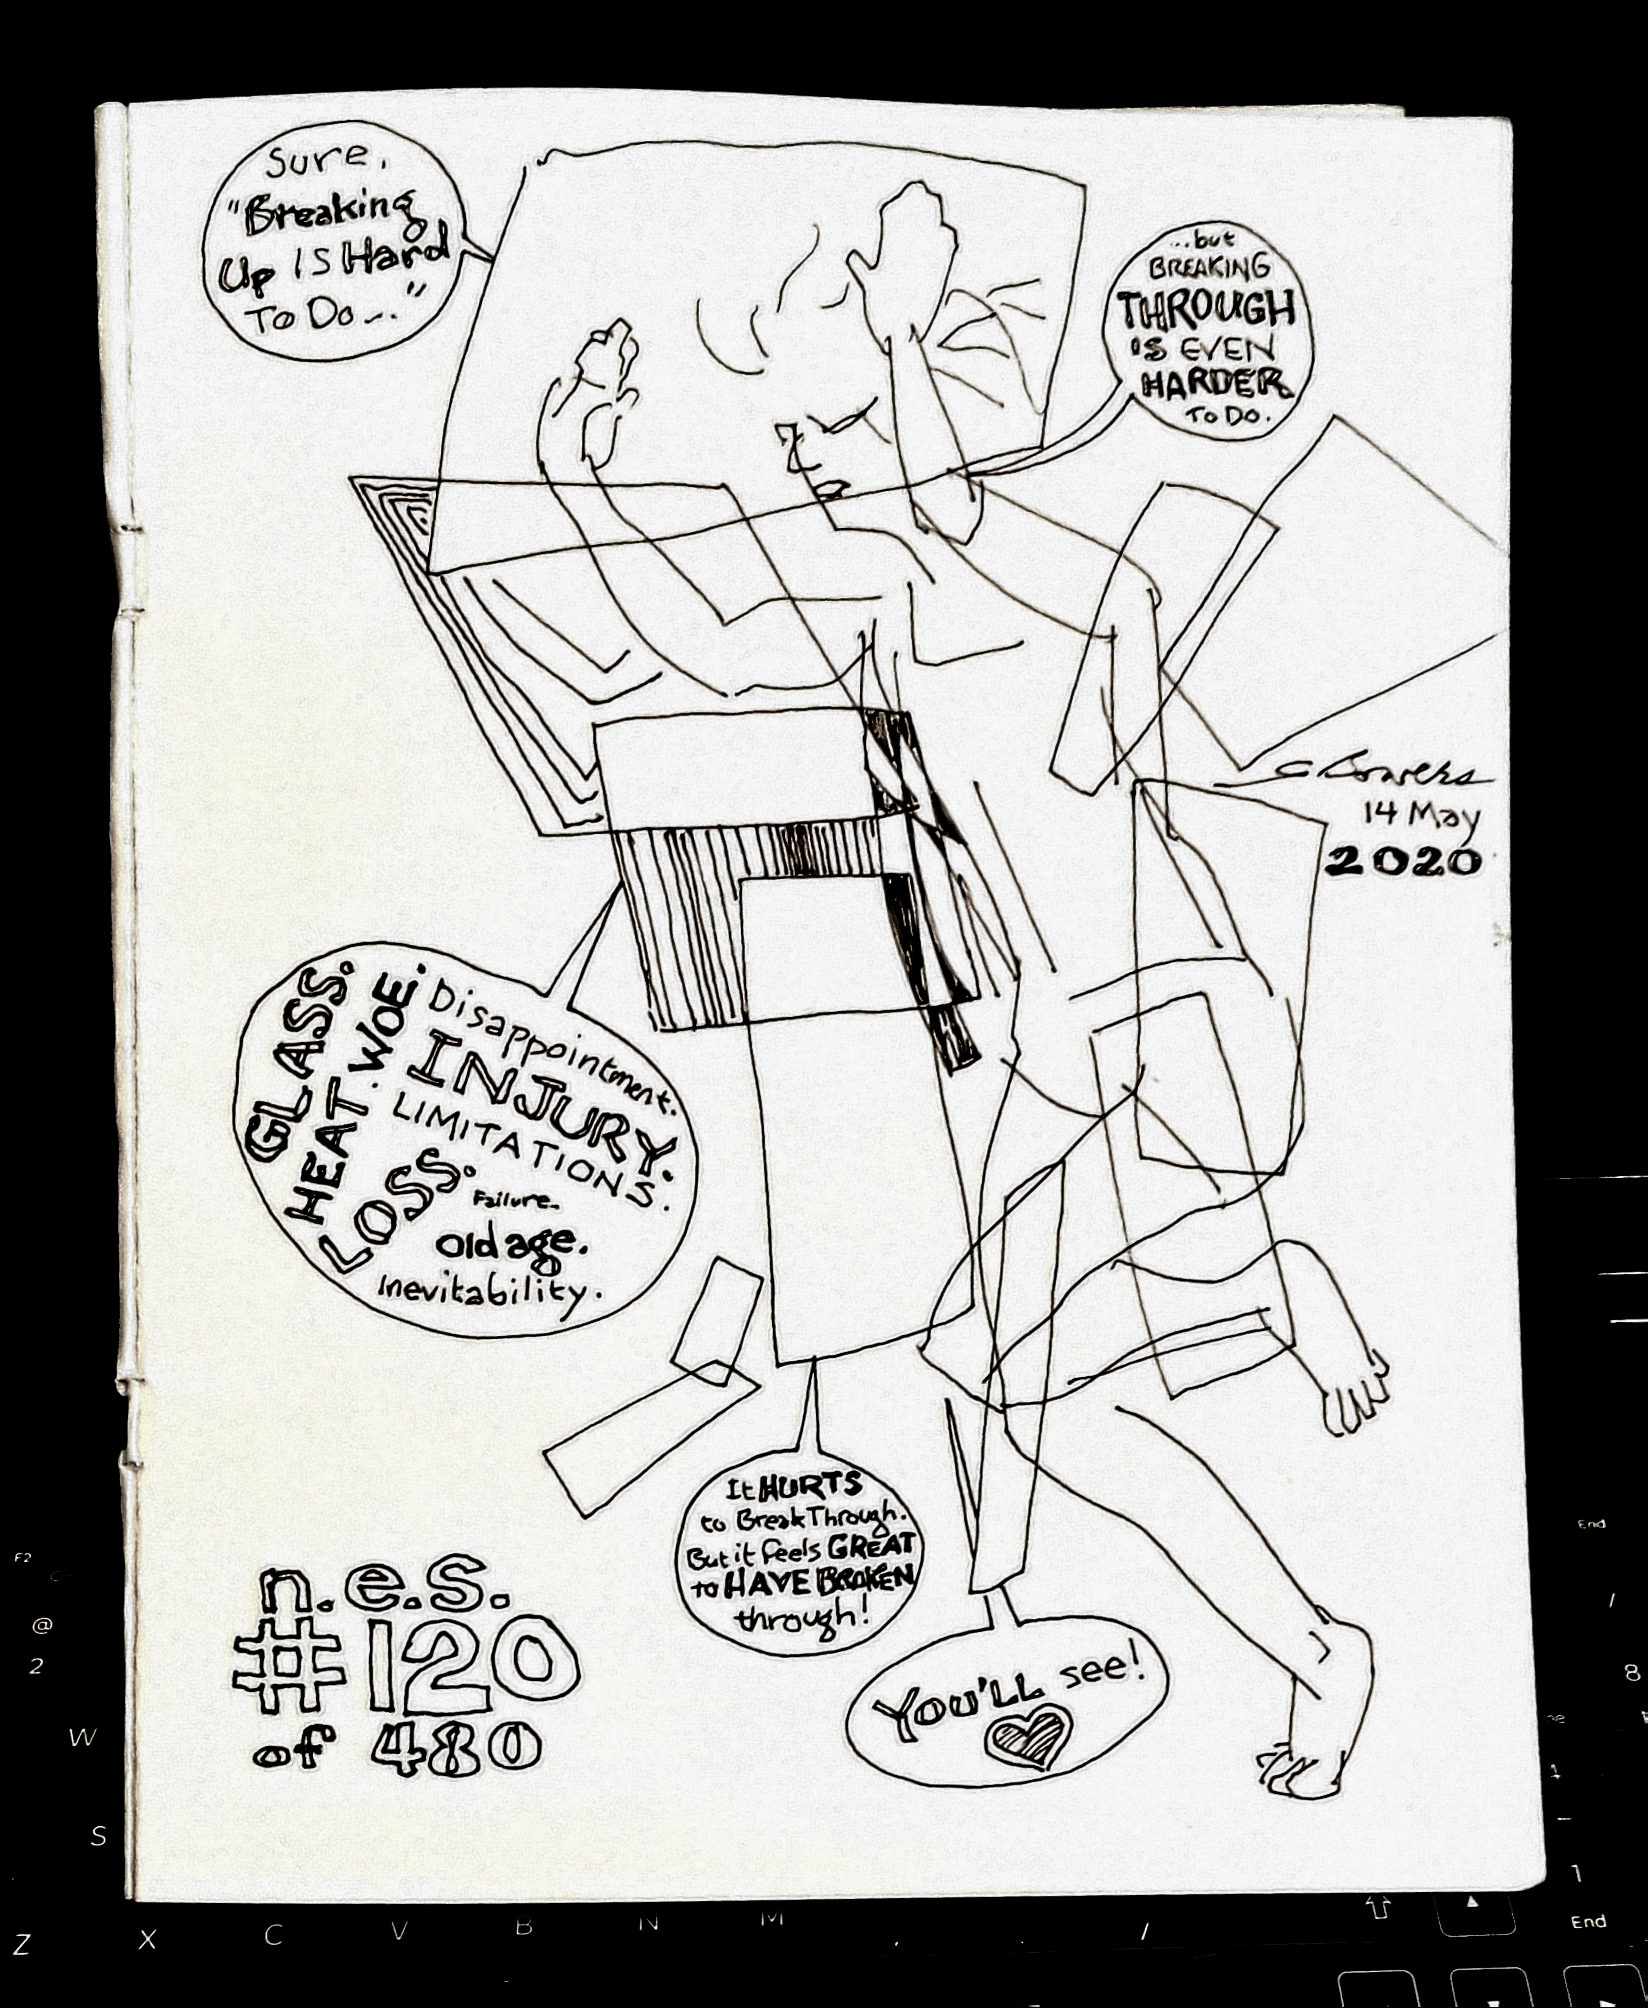 Sure,
"Breaking
Up IS Hard
To Do..."
...but
BREAKING
THROUGH
IS EVEN
HARDER
To Do.
C Bowers
14 May
2020
GLASS.
HEAT. WOE.
Disappointment.
INJURY.
LIMITATIONS.
LOSS.
Failure.
Old age.
Inevitability.
It HURTS
to Break Through.
But it feels GREAT
to HAVE BROKEN
through!
You'LL see!
n.e.s.
#120
of 480
F2
@
2
W
S
Z X C V B N M , . /
End
/
8
1
End